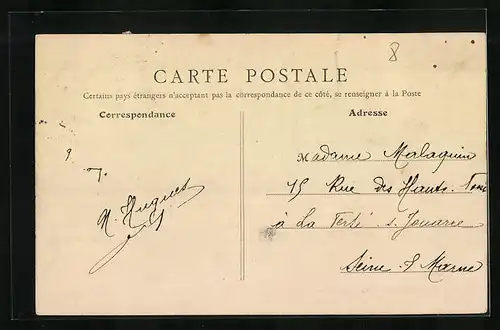 8
CARTE POSTALE
Certains pays étrangers n'acceptant pas la correspondance de ce côté, se renseigner à la Poste
Correspondance
Adresse
Madame Malaquin
15 Rue des Hauts
à La Ferté s. Jouarre
Seine & Marne
H. Hugues